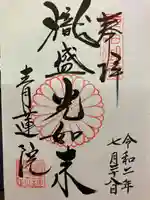 奉拝
令和二年
七月
熾盛光如来
青蓮院